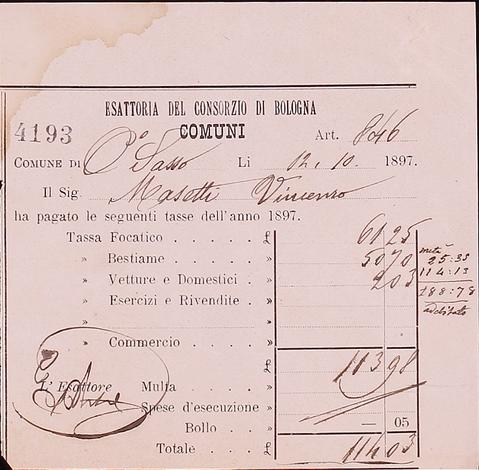 ESATTORIA DEL CONSORZIO DI BOLOGNA
4193 COMUNI Art. 846
COMUNE DI P.o Sasso Li 12. 10. 1897.
Il Sig. Masetti Vincenzo
ha pagato le seguenti tasse dell'anno 1897.
Tassa Focatico . . . . . £ 61 25
» Bestiame . . . . . » 50 70
» Vetture e Domestici . » 2 03
» Esercizi e Rivendite . »
» »
» Commercio . . . . »
£ 113 98
L'Esattore Multa . . . . . »
Spese d'esecuzione »
Bollo . . » — 05
Totale . . » 114 03
metà
25:35
114:13
188:78